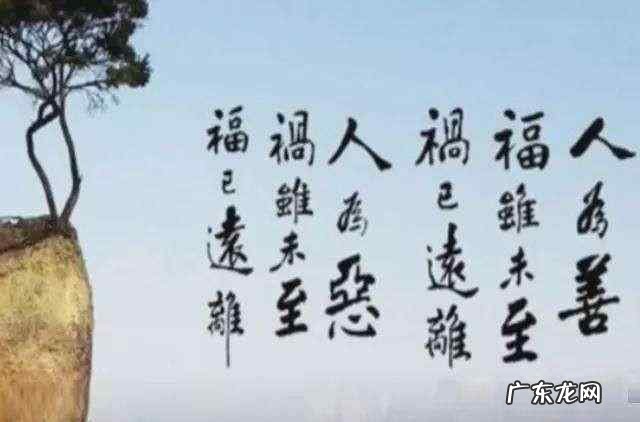 人為善
福雖未至
禍已遠離
人為惡
禍雖未至
福已遠離
广东龙网